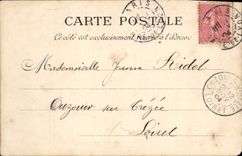 CARTE POSTALE
Ce côté est exclusivement réservé à l'adresse
PARIS
Mademoiselle Jeanne Ridel
Ouzouer sur Trézée
Loiret